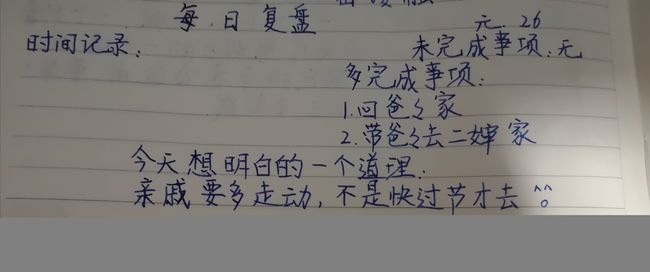 每日复盘 元.26
时间记录: 未完成事项:无
多完成事项:
1.回爸々家
2.带爸々去二婶家
今天想明白的一个道理:
亲戚要多走动,不是快过节才去